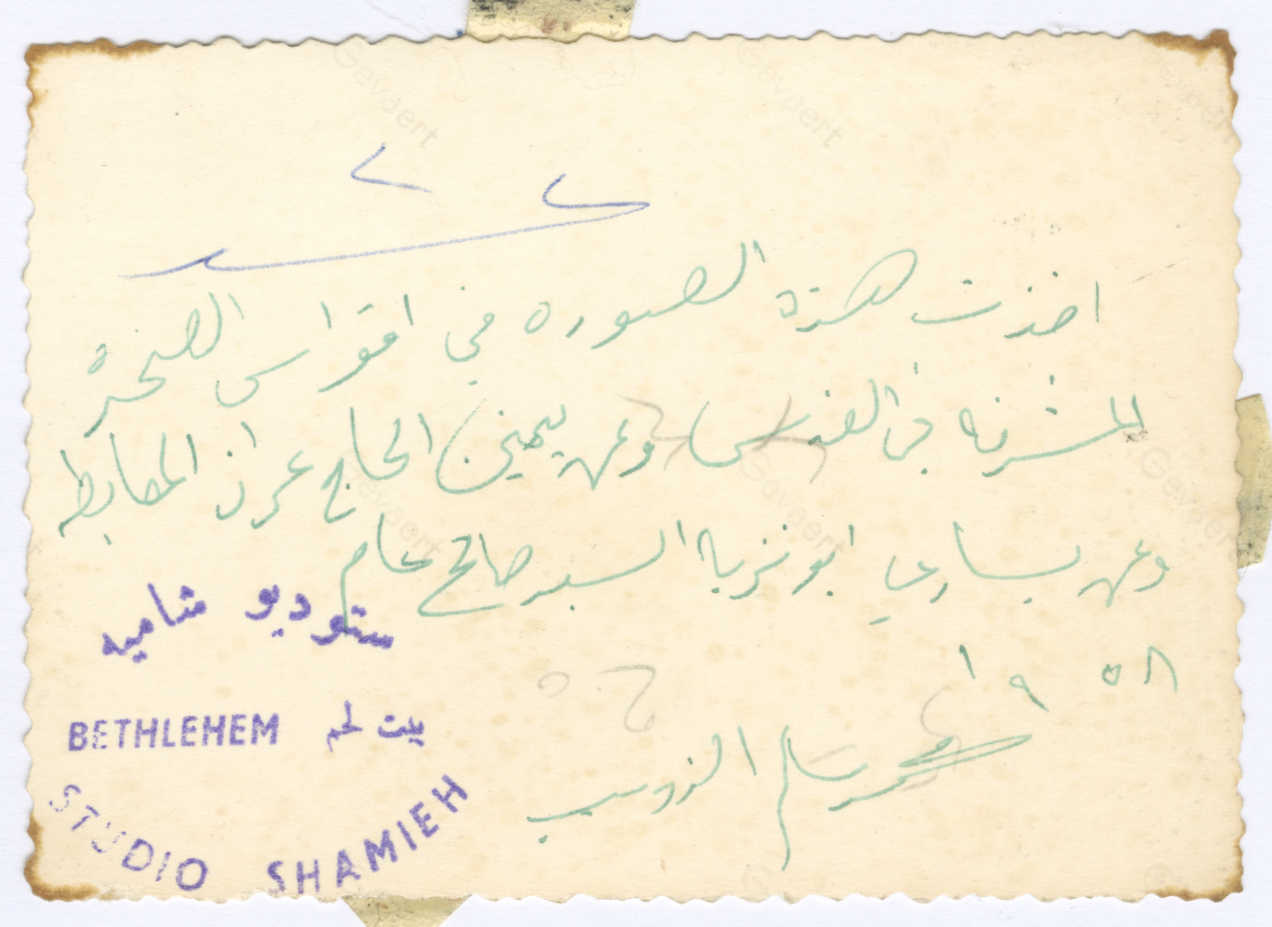 اخذت هذه الصوره في اقواس الصخرة
المشرفه في القدس وعن يميني الحاج
وعن يساري ابو السيد صالح عام
١٩٥٨
محمد سالم الذويب
ستوديو شاميه
BETHLEHEM بيت لحم
STUDIO SHAMIEH
Gevaert